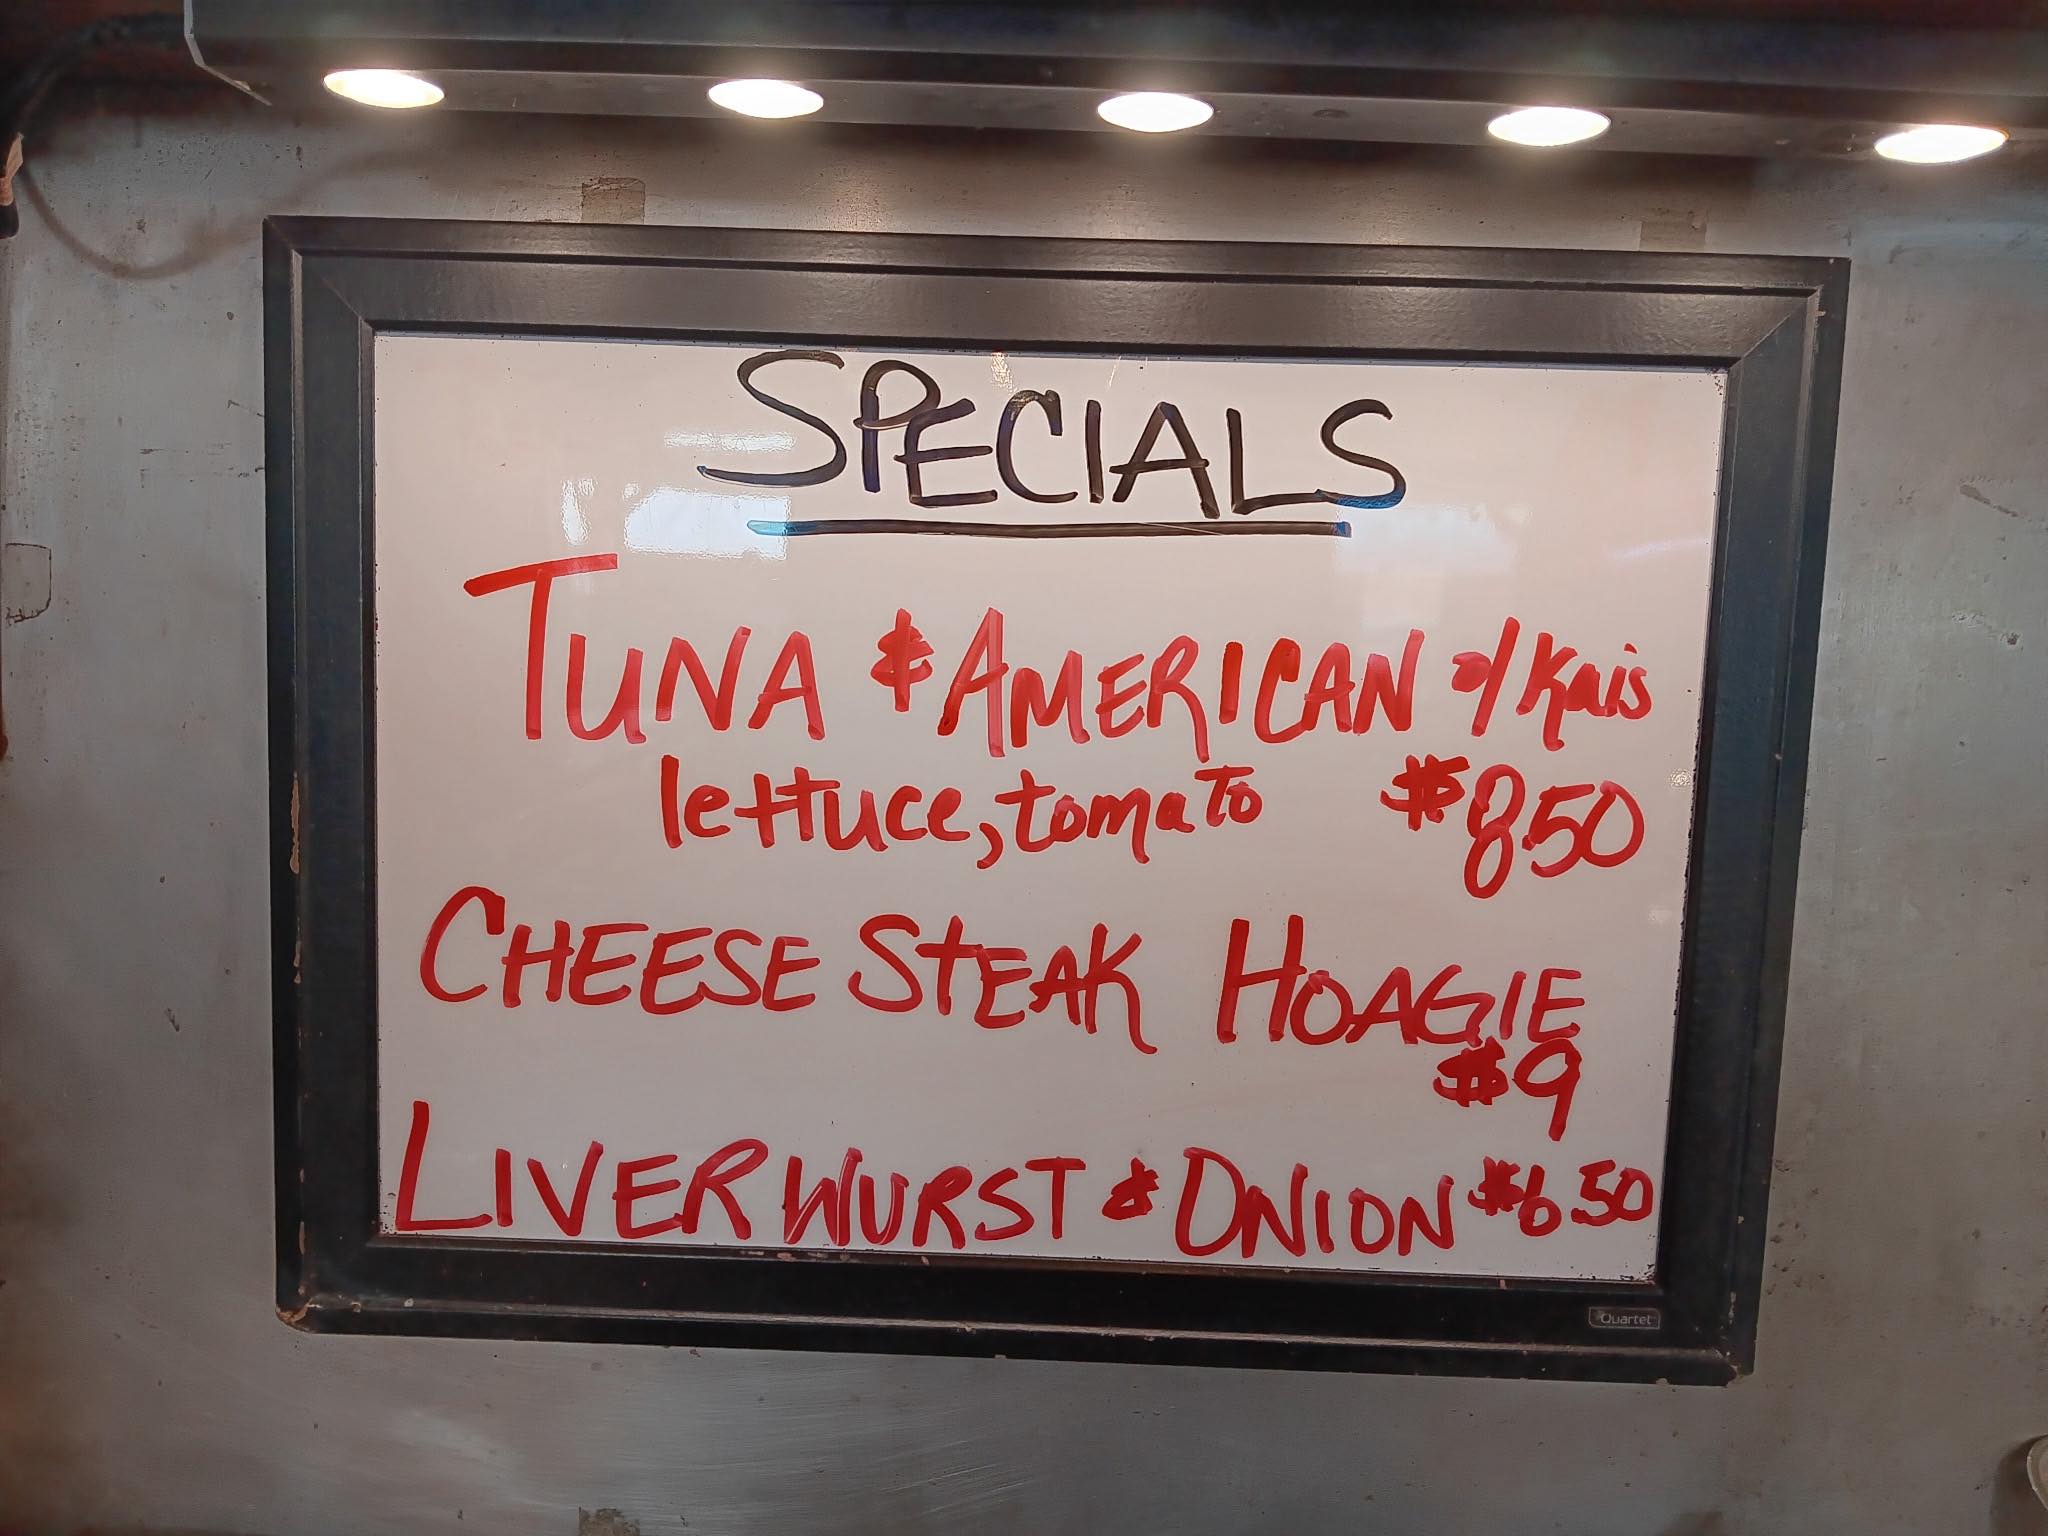 SPECIALS
TUNA & AMERICAN o/Kais
lettuce, tomato $850
CHEESE STEAK HOAGIE
$9
LIVERWURST & ONION $6.50
Quartet